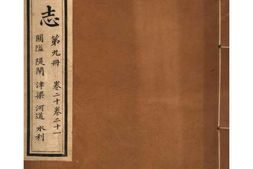 志
第九冊
卷二十卷二十一
關隘 隄閘 津梁 河道 水利